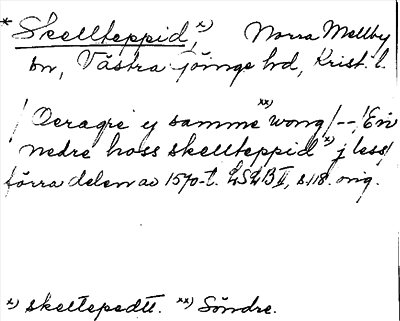 * Skellteppid, x) Norra Mellby
sn, Västra Göinge hd, Krist. l.
/ Oeragre ij samme xx) wong /--/ En
nedre hoss skellteppid x) j less /
förra delen av 1570-t. LSLB II, s. 118. orig.
x) skeltepedtt. xx) Söndre.